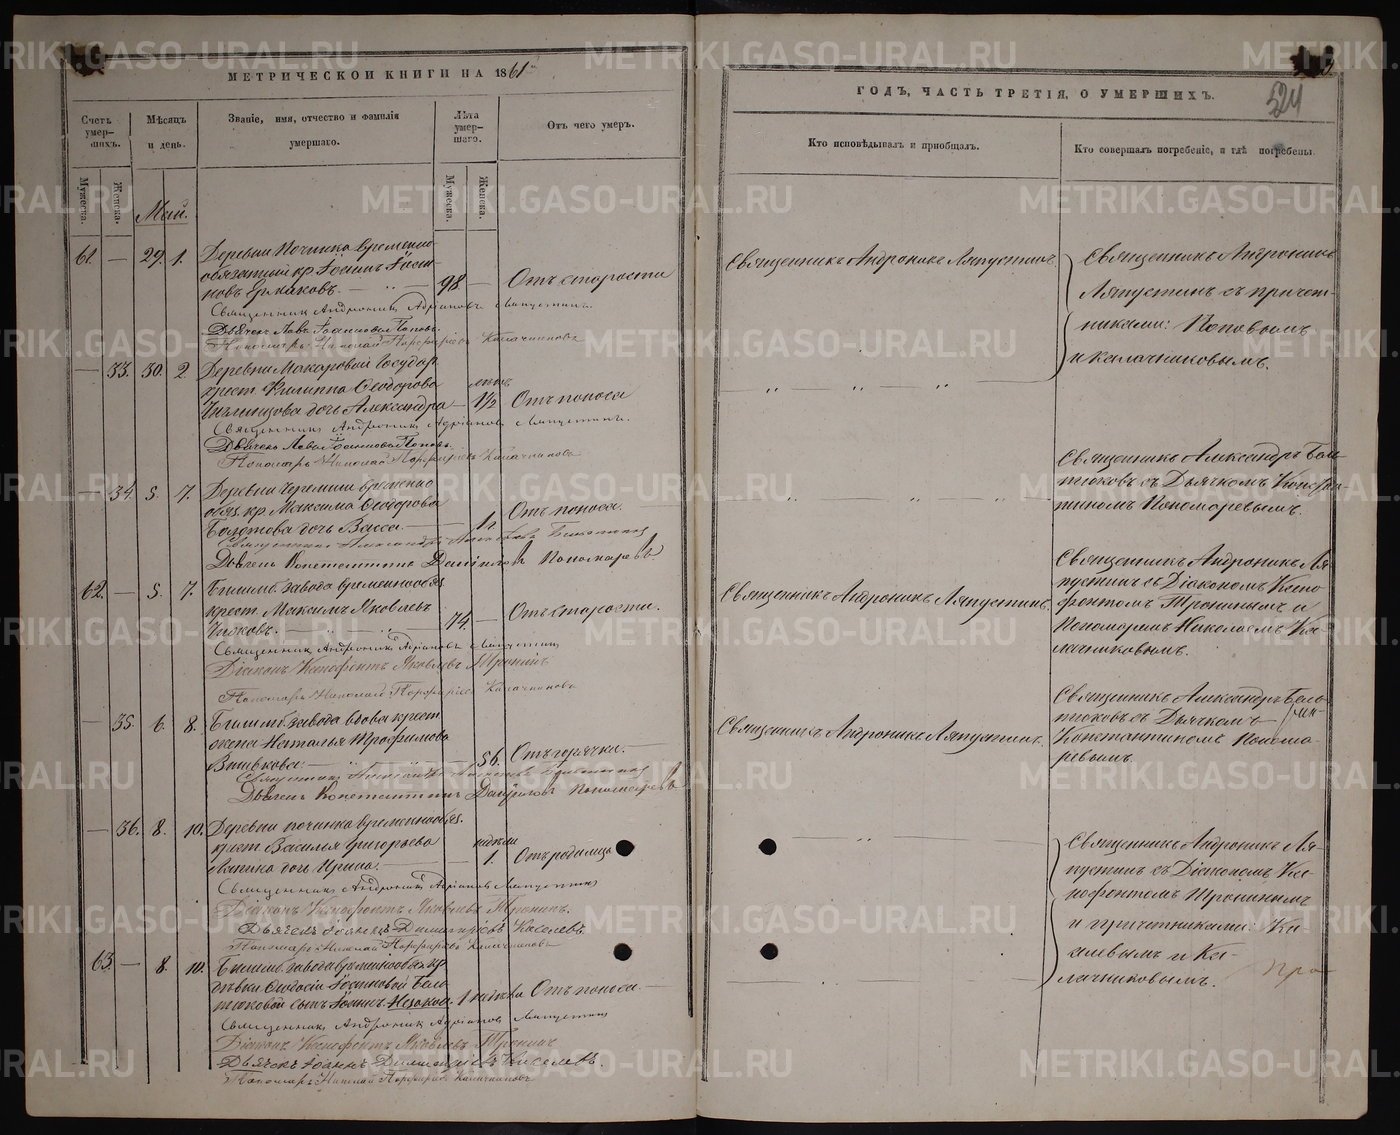 МЕТРИЧЕСКОЙ КНИГИ НА 1861
ГОДЪ, ЧАСТЬ ТРЕТІЯ, О УМЕРШИХЪ.
524
Счетъ умер-шихъ.
Мѣсяцъ и день.
Званіе, имя, отчество и фамилія умершаго.
Лѣта умер-шаго.
Отъ чего умеръ.
Кто исповѣдывалъ и пріобщалъ.
Кто совершалъ погребеніе, и гдѣ погребены.
Мужеска. Женска.
Мужеска. Женска.
Май.
61. — 29. 1. Деревни Починка временно
обязанный кр. Іоаннъ
новъ Ермаковъ. — 98. — Отъ старости
Священникъ Андроникъ Адріановъ Ляпустинъ.
Дьячекъ Левъ Іоанновъ Поповъ
Пономарь Николай Порфирьевъ Калачниковъ
Священникъ Андроникъ Ляпустинъ.
Священникъ Андроникъ
Ляпустинъ съ причет-
никами: Поповымъ
и Калачниковымъ.
— 33. 30. 2. Деревни Макаровой Государ.
крест. Филиппа Ѳеодорова
дочь Александра — 1/2 Отъ поноса
Священникъ Андроникъ Адріановъ Ляпустинъ.
Дьячекъ Левъ Іоанновъ Поповъ.
Пономарь Николай Порфирьевъ Калачниковъ
— 34. 5. 7. Деревни Черемши временно
обяз. кр. Максима Ѳеодорова
Болотова дочь Васса. — 1 г. Отъ поноса.
Дьячекъ Константинъ Даниловъ Пономаревъ
Священникъ Александръ Бѣль-
тюковъ съ Дьячкомъ Констан-
тиномъ Пономаревымъ.
62. — 5. 7. Билимб. завода временнообяз.
крест. Максимъ Яковлевъ
Чижовъ. — 74. — Отъ старости.
Священникъ Андроникъ Адріановъ Ляпустинъ
Діаконъ Ксенофонтъ Яковлевъ Тронинъ
Пономарь Николай Порфирьевъ Калачниковъ
Священникъ Андроникъ Ляпустинъ.
Священникъ Андроникъ Ля-
пустинъ съ Діакономъ Ксено-
фонтомъ Тронинымъ и
Пономаремъ Николаемъ Ка-
лачниковымъ.
— 35. 6. 8. Билимб. завода вдова крест.
жена Наталья Трофимова
— 56. Отъ горячки. —
Дьячекъ Константинъ Даниловъ Пономаревъ
Священникъ Андроникъ Ляпустинъ.
Священникъ Александръ Бѣль-
тюковъ съ Дьячкомъ
Константиномъ Пономо-
ревымъ.
— 36. 8. 10. Деревни починка временнообяз.
крест. Василья Григорьева
дочь Ирина — недѣли 1. Отъ родимца
Священникъ Андроникъ Адріановъ Ляпустинъ
Діаконъ Ксенофонтъ Яковлевъ Тронинъ.
Дьячекъ Іоаннъ Димитріевъ Киселевъ.
Пономарь Николай Порфирьевъ Калачниковъ
Священникъ Андроникъ Ля-
пустинъ съ Діакономъ Ксе-
нофонтомъ Тронинымъ
и причетниками: Ки-
селевымъ и Ка-
лачниковымъ.
63. — 8. 10. Билимб. завода временнообяз. кр.
дѣвки Ѳеодосіи Іоанновой Бѣль-
тюковой сынъ Іоаннъ Незакон. 1 недѣля Отъ поноса. —
Священникъ Андроникъ Адріановъ Ляпустинъ
Діаконъ Ксенофонтъ Яковлевъ Тронинъ
Дьячекъ Іоаннъ Димитріевъ Киселевъ.
Пономарь Николай Порфирьевъ Калачниковъ
METRIKI.GASO-URAL.RU